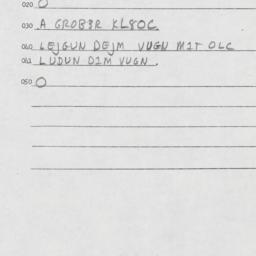 020 O
030 A GROB8R KL8OC
040 LEJGUN DEJM VUGN M1T OLC
041 LUDUN D1M VUGN.
050 O